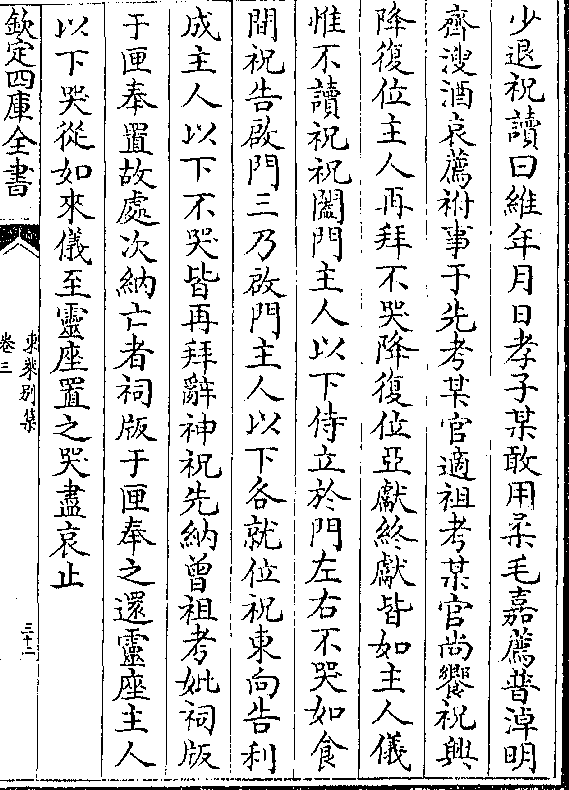 少退祝讀曰維年月日孝子某敢用柔毛嘉薦普淖明
齊溲酒哀薦祔事于先考某官適祖考某官尚饗祝興
降復位主人再拜不哭降復位亞獻終獻皆如主人儀
惟不讀祝祝闔門主人以下侍立於門左右不哭如食
間祝告啟門三乃啟門主人以下各就位祝東向告利
成主人以下不哭皆再拜辭神祝先納曾祖考妣祠版
于匣奉置故處次納亡者祠版于匣奉之還靈座主人
以下哭從如來儀至靈座置之哭盡哀止
欽定四庫全書
東萊別集
卷三
三十二